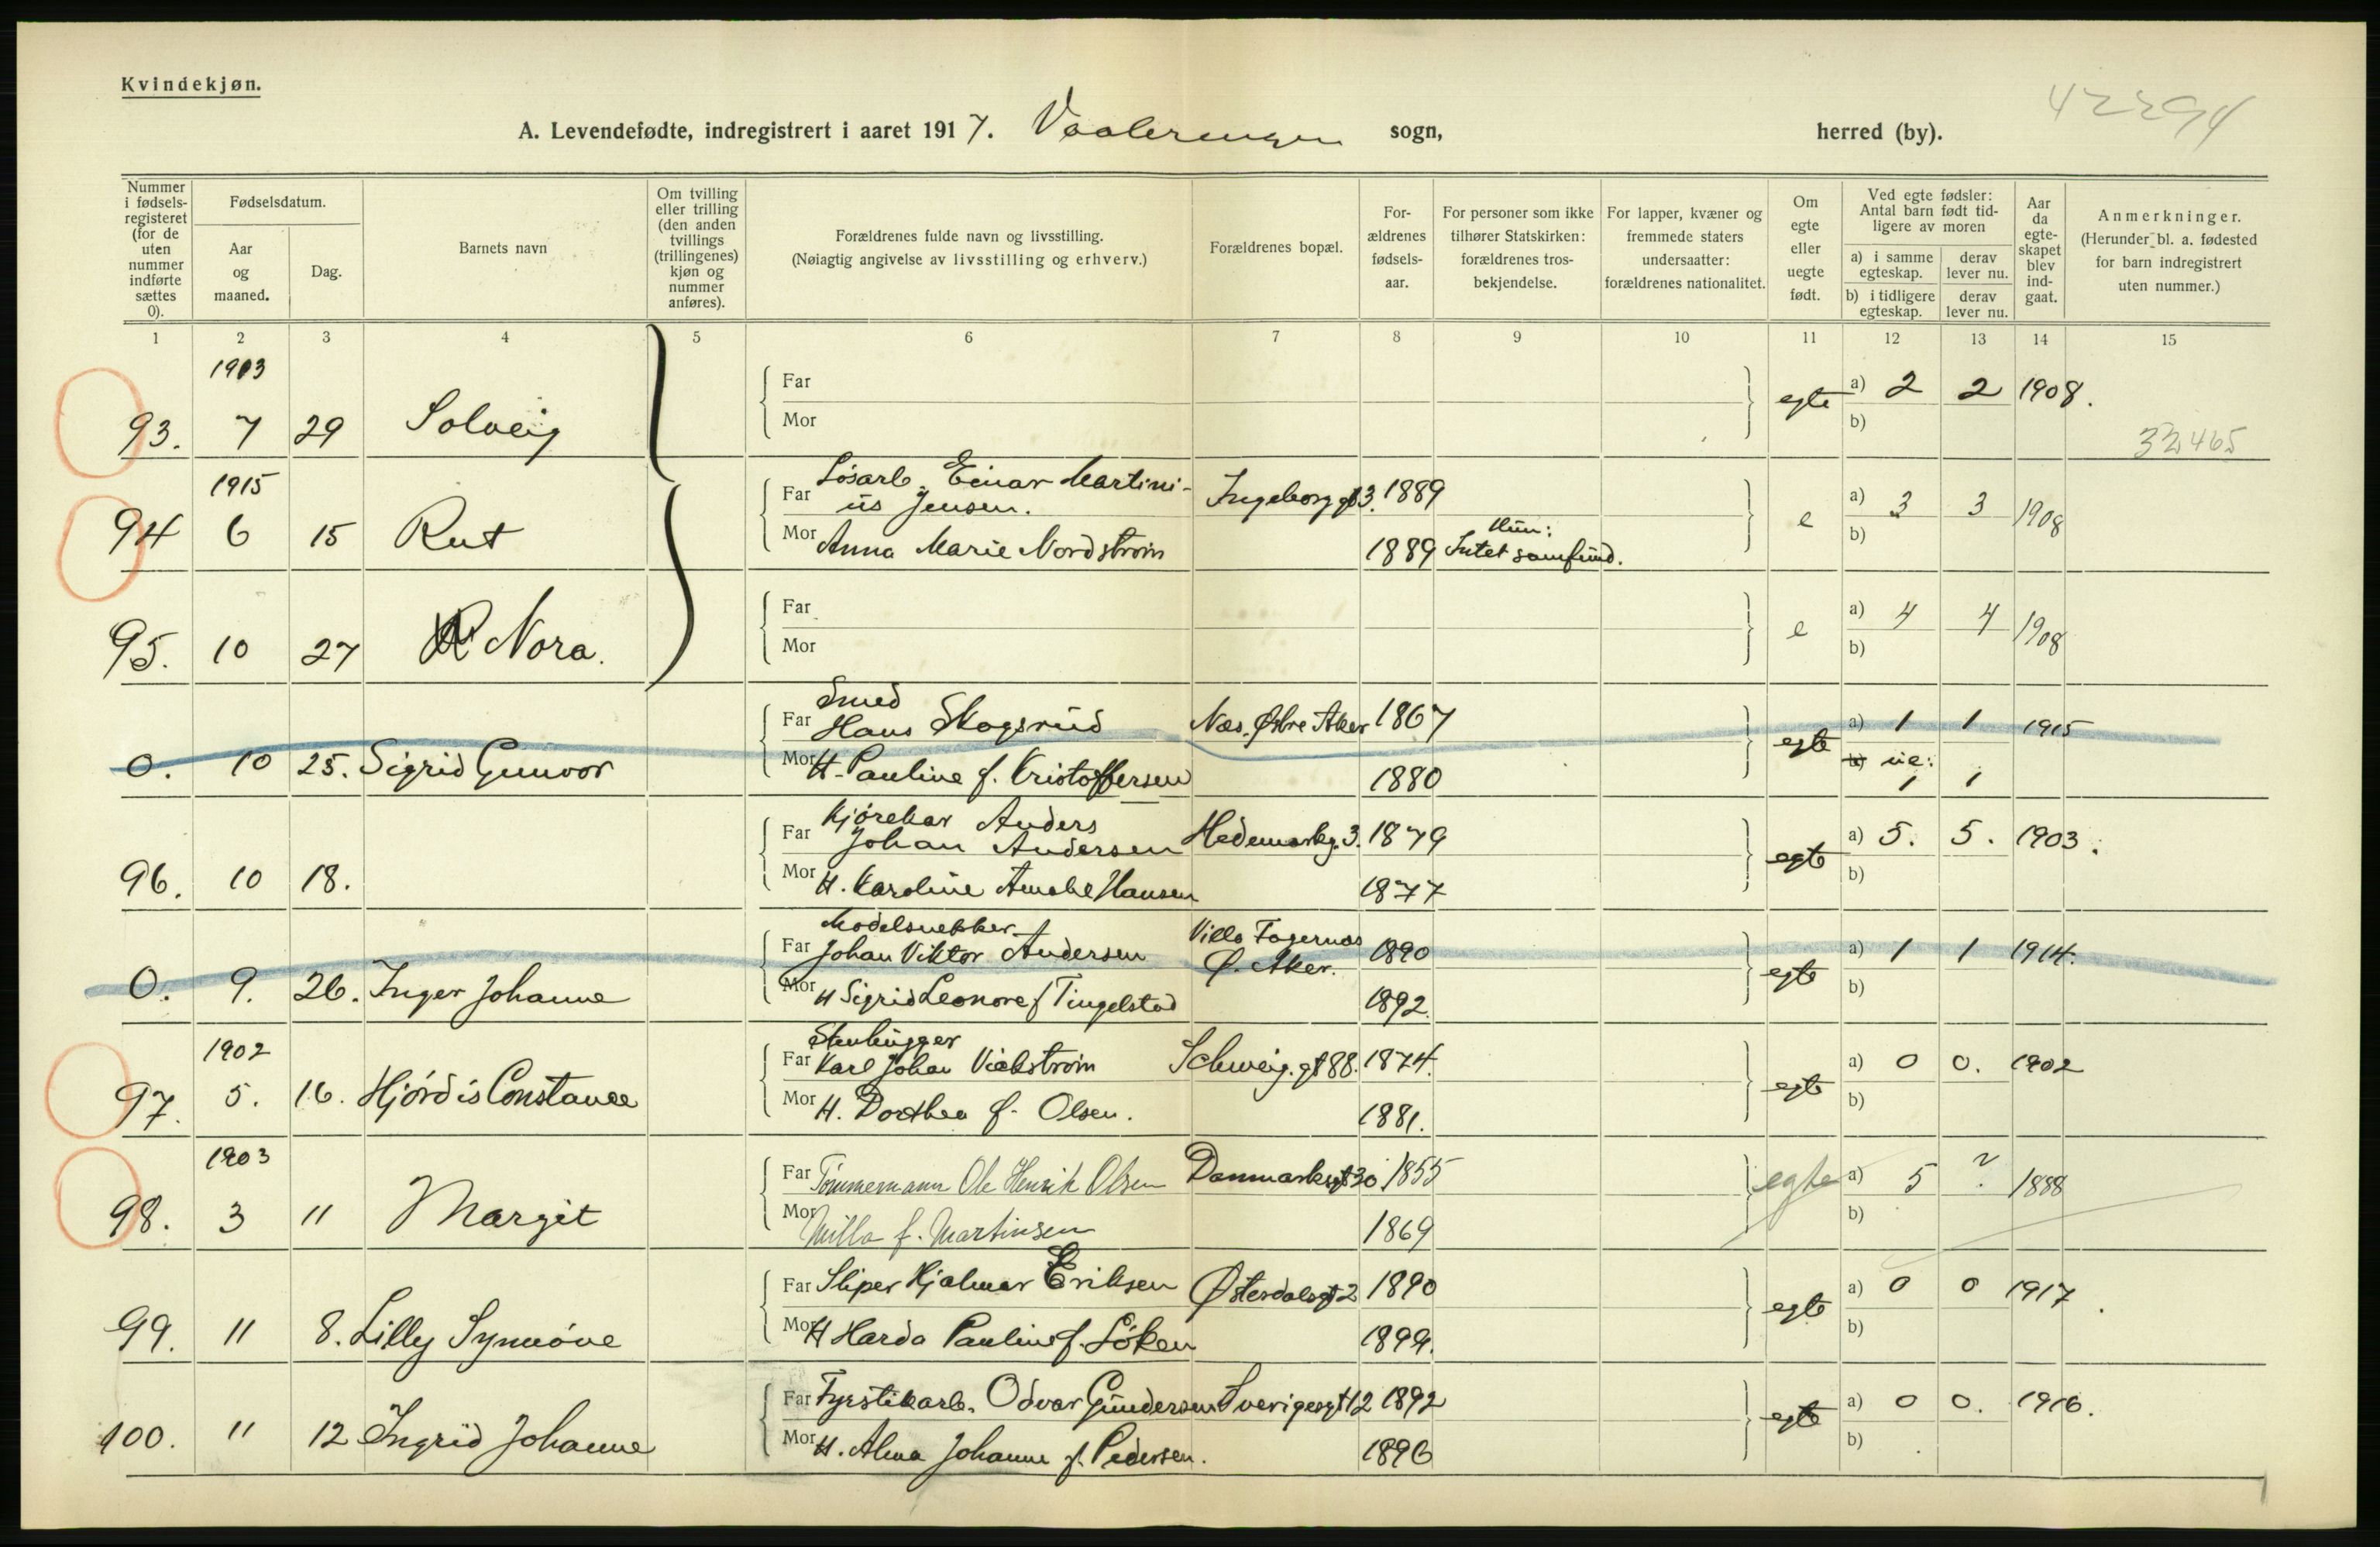 Kvindekjøn.
42294
A. Levendefødte, indregistrert i aaret 1917. Vaalerengen sogn, herred (by).
Nummer i fødsels-registeret (for de uten nummer indførte sættes 0).
Fødselsdatum.
Aar og maaned.
Dag.
Barnets navn
Om tvilling eller trilling (den anden tvillings (trillingenes) kjøn og nummer anføres).
Forældrenes fulde navn og livsstilling.
(Nøiagtig angivelse av livsstilling og erhverv.)
Forældrenes bopæl.
For-ældrenes fødsels-aar.
For personer som ikke tilhører Statskirken: forældrenes tros-bekjendelse.
For lapper, kvæner og fremmede staters undersaatter: forældrenes nationalitet.
Om egte eller uegte født.
Ved egte fødsler: Antal barn født tid-ligere av moren
a) i samme egteskap. derav lever nu.
b) i tidligere egteskap. derav lever nu.
Aar da egte-skapet blev ind-gaat.
Anmerkninger.
(Herunder bl. a. fødested for barn indregistrert uten nummer.)
1 2 3 4 5 6 7 8 9 10 11 12 13 14 15
1903
Far egte a) 2 2 1908.
93. 7 29 Solveig Mor b)
33465
1915
Far Løsarb. Einar Martini-
us Jensen. Ingeborggt 3. 1889 e a) 3 3 1908
94 6 15 Rut Mor Anna Marie Nordstrøm 1889 Hun: Intet samfund. b)
Far e a) 4 4 1908
95. 10 27 Nora. Mor b)
Smed
Far Hans Skogsrud Næs. Østre Aker 1867 egte a) 1 1 1915
0. 10 25. Sigrid Gunvor Mor H. Pauline f. Kristoffersen 1880 b) ue: 1 1
Kjørekar Anders
Far Johan Andersen Hedemarkg. 3. 1879 egte a) 5. 5. 1903.
96. 10 18. Mor H. Karoline Amalie Hansen 1877 b)
Modelsnekker
Far Johan Viktor Andersen Villa Fagernæs Ø. Aker. 1890 egte a) 1 1 1914.
0. 9. 26. Inger Johanne Mor H Sigrid Leonore f Tingelstad 1892. b)
1902 Stenhugger
Far Karl Johan Vickstrøm Schweig. gt 88. 1874. egte a) 0 0. 1902
97. 5. 16. Hjördis Constance Mor H. Dorthea f. Olsen. 1881. b)
1903
Far Tömmermann Ole Henrik Olsen Danmarksgt 30 1855 egte a) 5 ? 1888
98. 3 11 Margit Mor Milla f. Martinsen 1869 b)
Far Sliper Hjalmar Eriksen Østerdalsgt 2 1890 egte a) 0 0 1917.
99. 11 8. Lilly Synnöve Mor H Harda Pauline f. Löken 1899. b)
Far Fyrstikarb. Odvar Gundersen Sverigesgt 12 1892 egte a) 0 0. 1916.
100. 11 12 Ingrid Johanne Mor H. Alma Johanne f. Pedersen. 1896 b)